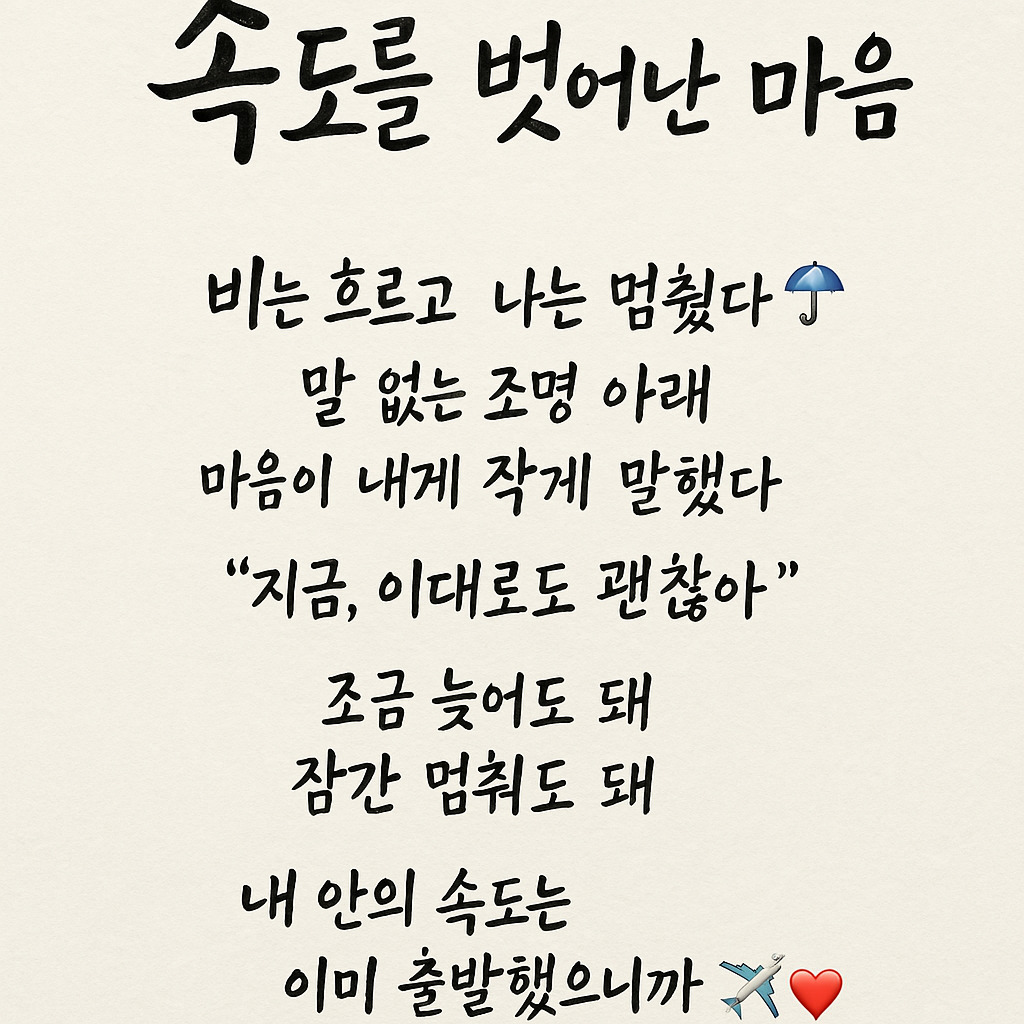 속도를 벗어난 마음
비는 흐르고 나는 멈췄다☂️
말 없는 조명 아래
마음이 내게 작게 말했다
“지금, 이대로도 괜찮아”
조금 늦어도 돼
잠간 멈춰도 돼
내 안의 속도는
이미 출발했으니까✈️❤️